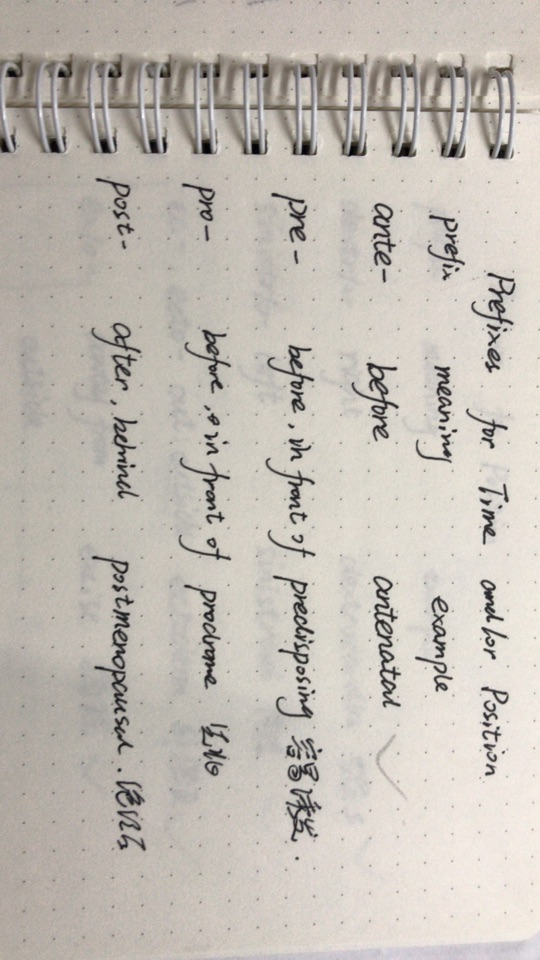 Prefixes for Time and/or Position
prefix meaning example
ante- before antenatal
pre- before, in front of predisposing 容易诱发.
pro- before, in front of prodrome
post- after, behind postmenopausal.